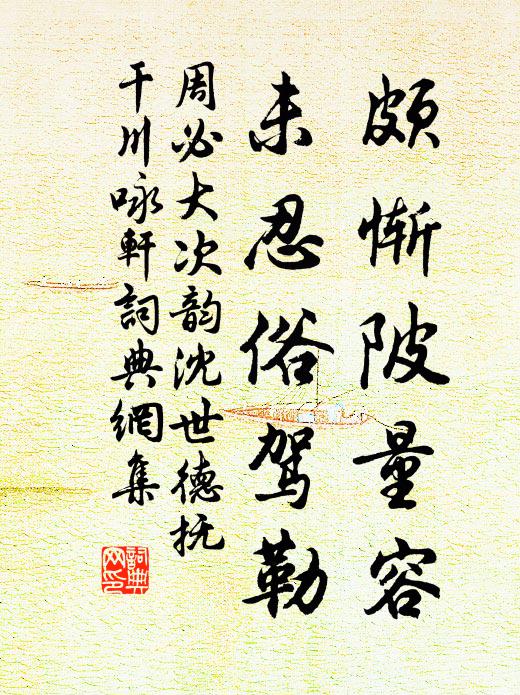 颇惭陂量容
未忍俗驾勒
周必大次韵沈世德抚
干川咏軒詞典網集
詞典网印